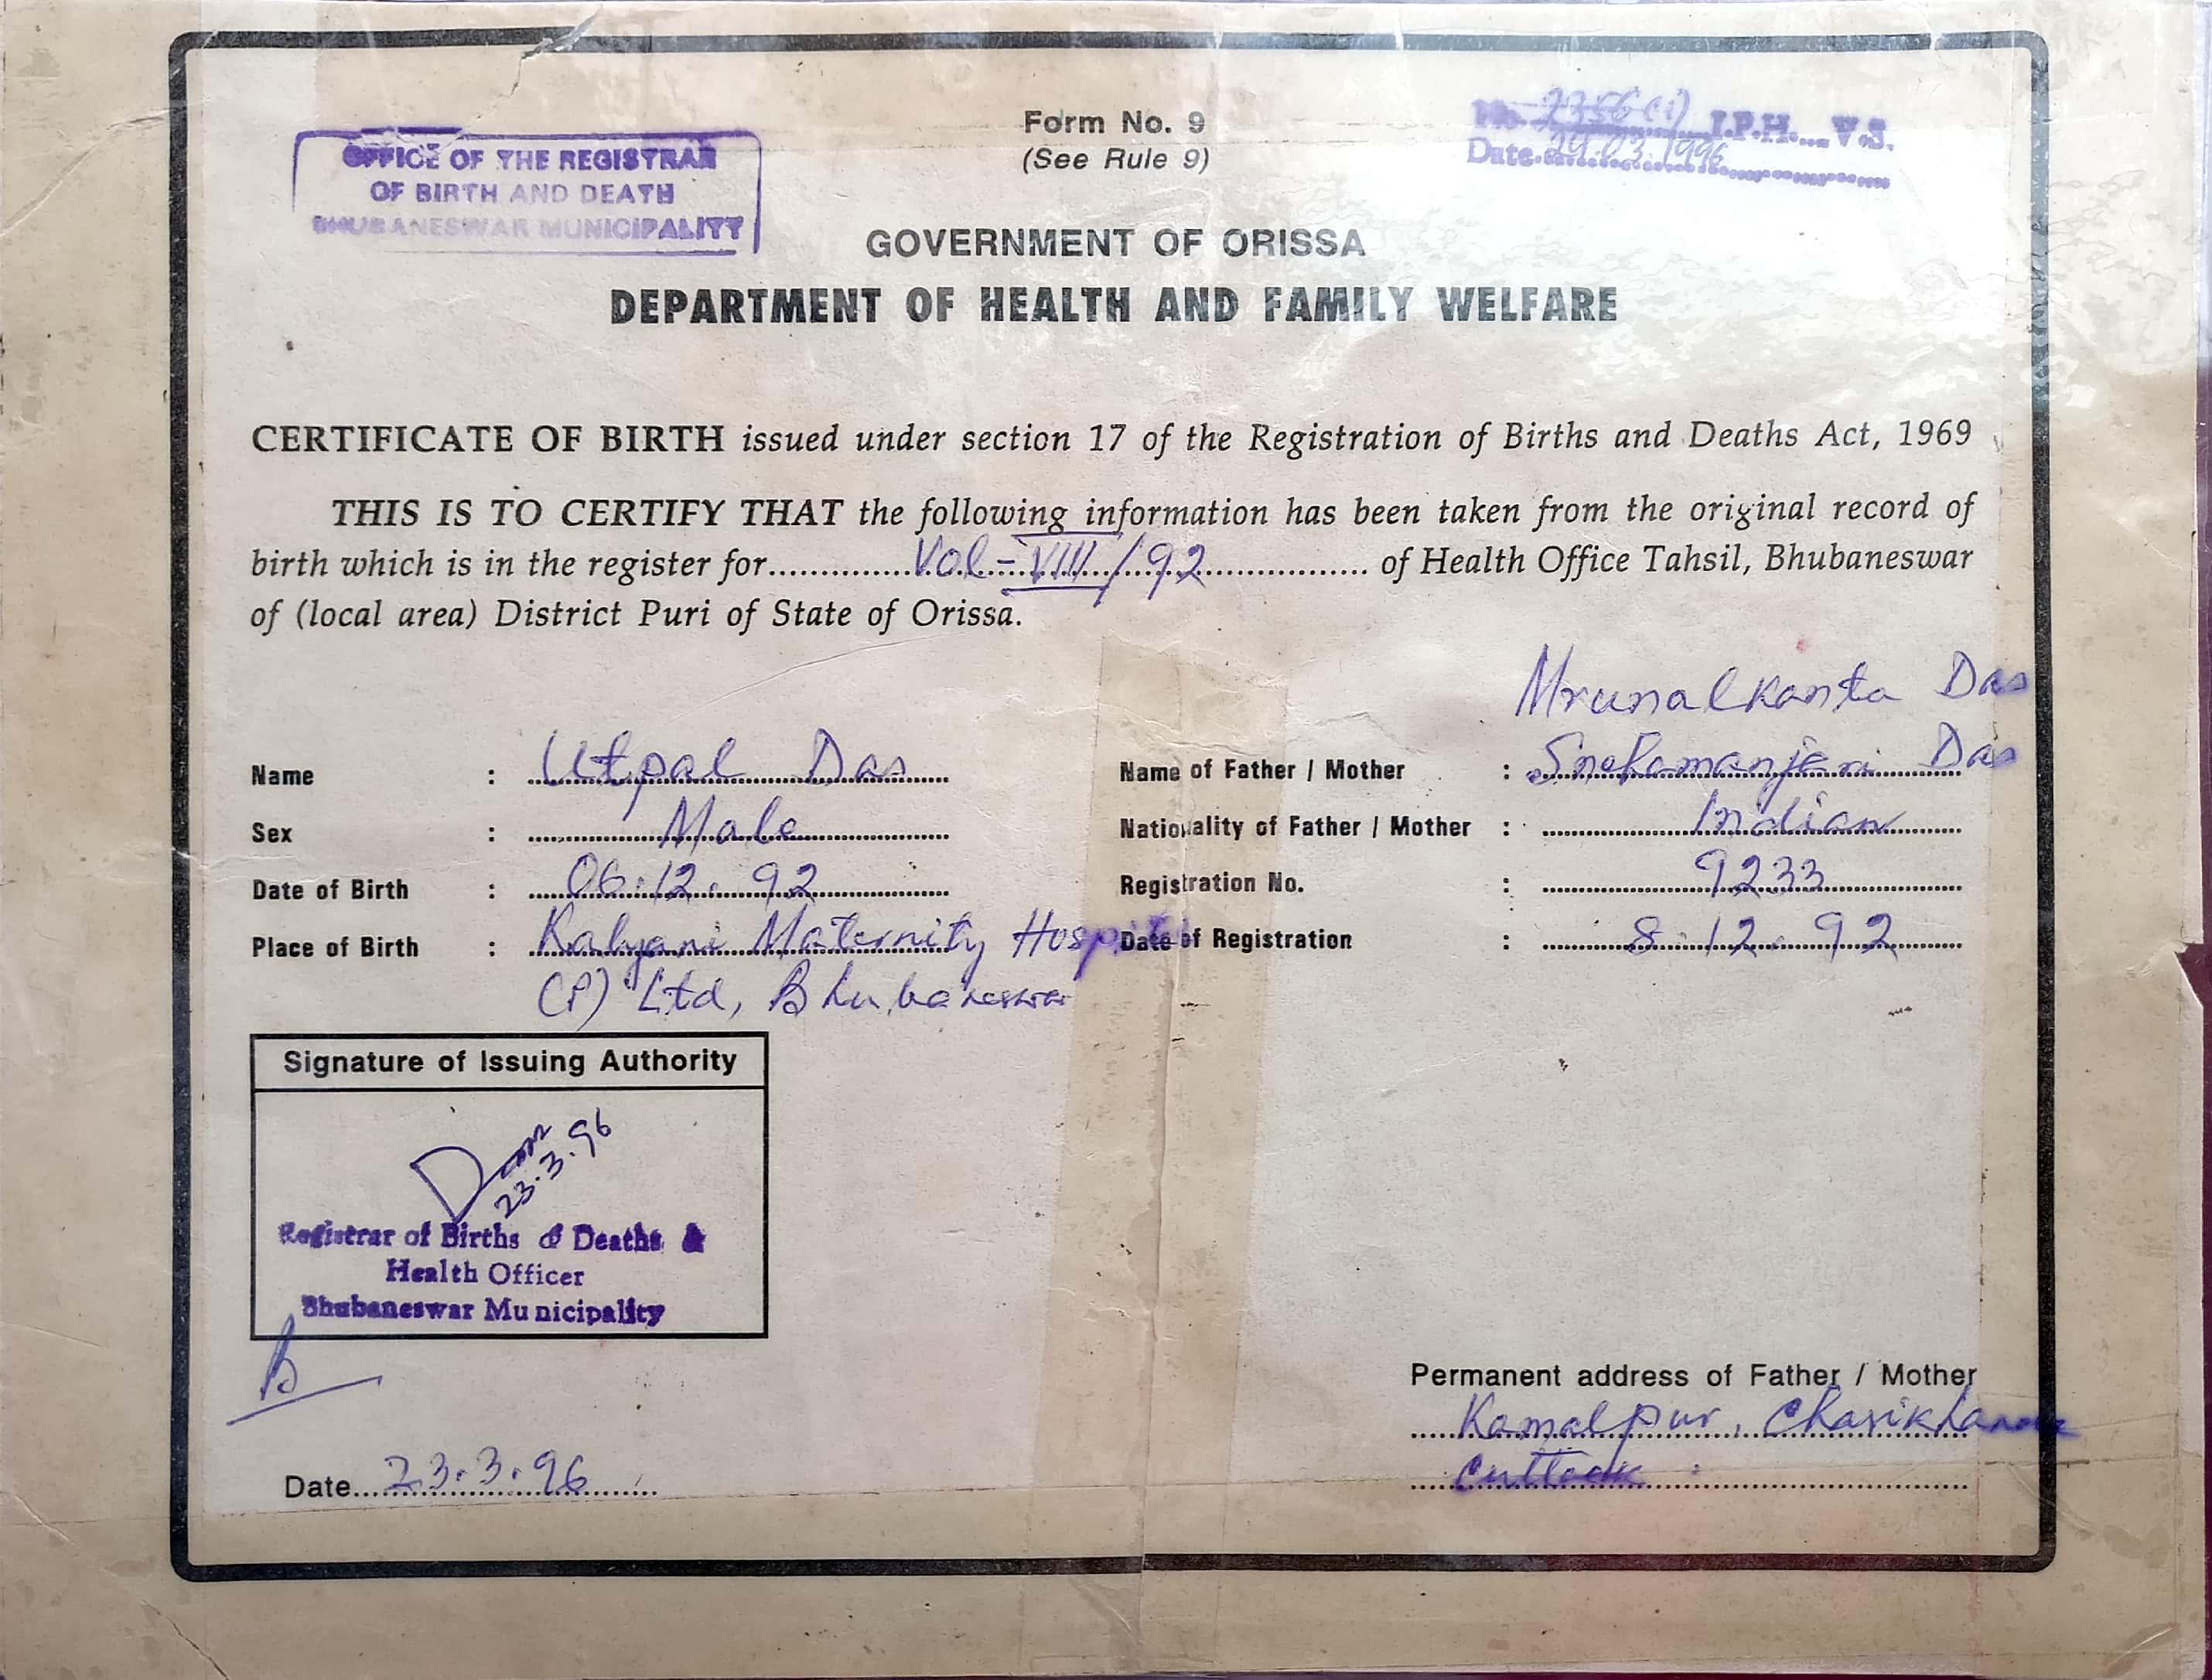 OFFICE OF THE REGISTRAR
OF BIRTH AND DEATH
BHUBANESWAR MUNICIPALITY
Form No. 9
(See Rule 9)
No. 2356(i) I.P.H. V.S.
Date 29.03.1996
GOVERNMENT OF ORISSA
DEPARTMENT OF HEALTH AND FAMILY WELFARE
CERTIFICATE OF BIRTH issued under section 17 of the Registration of Births and Deaths Act, 1969
THIS IS TO CERTIFY THAT the following information has been taken from the original record of
birth which is in the register for Vol-VIII/92 of Health Office Tahsil, Bhubaneswar
of (local area) District Puri of State of Orissa.
Name : Utpal Das
Sex : Male
Date of Birth : 06.12.92
Place of Birth : Kalyani Maternity Hospital
(P) Ltd, Bhubaneswar
Mrunalkanta Das
Name of Father / Mother : Das
Nationality of Father / Mother : Indian
Registration No. : 9233
Date of Registration : 8.12.92
Signature of Issuing Authority
23.3.96
Registrar of Births & Deaths &
Health Officer
Bhubaneswar Municipality
Date 23.3.96
Permanent address of Father / Mother
Kamalpur,
Cuttack